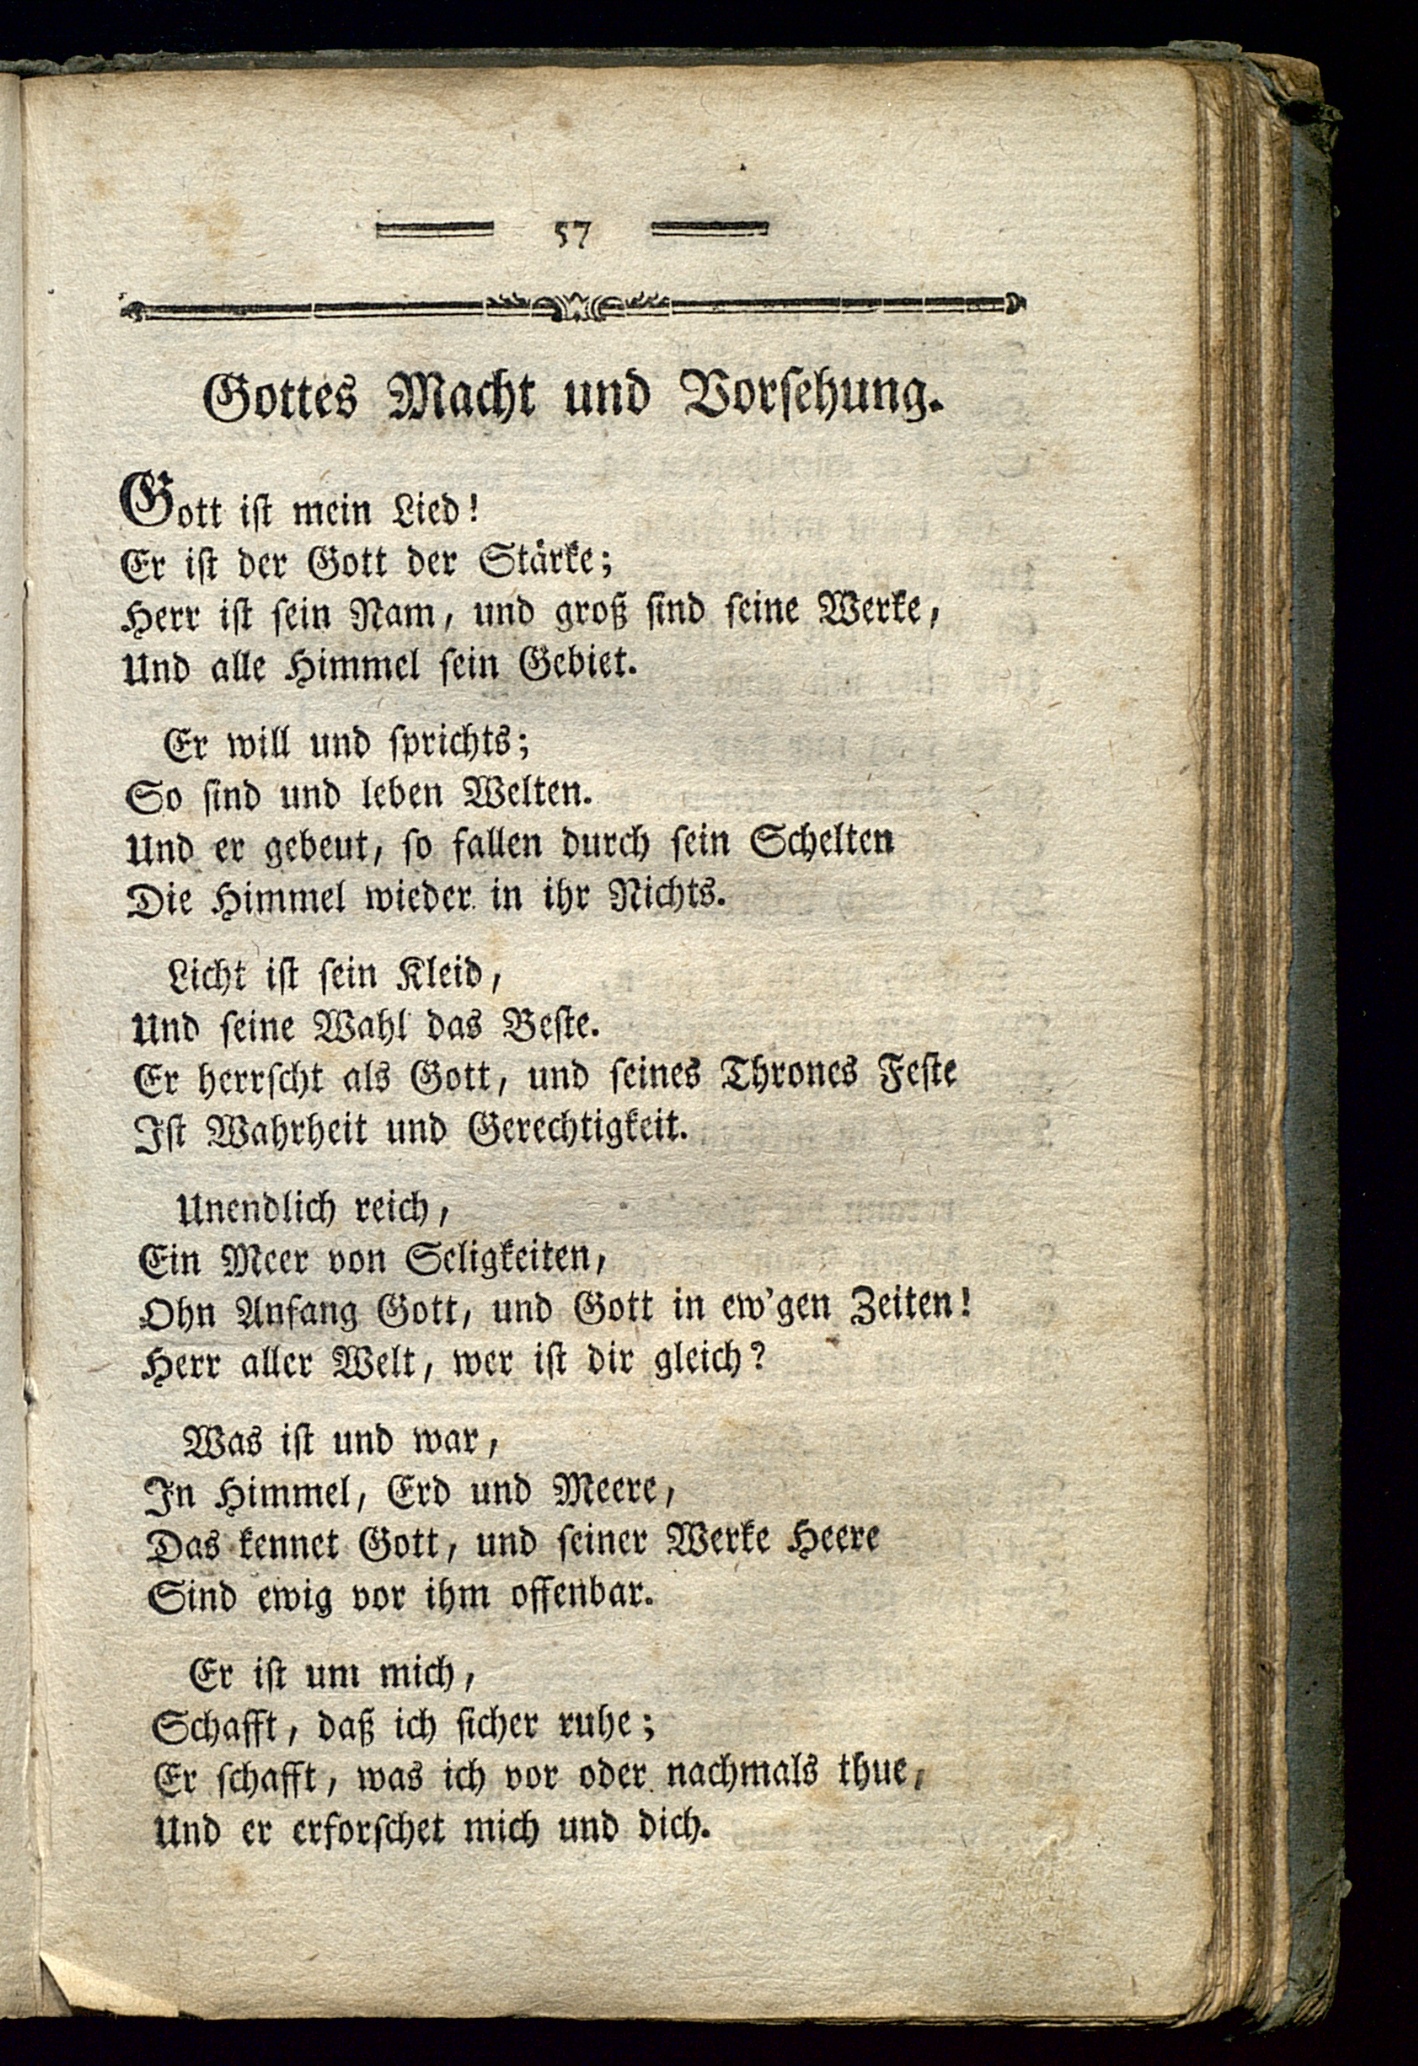 57
Gottes Macht und Vorſehung.
Gott iſt mein Lied!
Er iſt der Gott der Stärke;
Herr iſt ſein Nam, und groß ſind ſeine Werke,
Und alle Himmel ſein Gebiet.
Er will und ſprichts;
So ſind und leben Welten.
Und er gebeut, ſo fallen durch ſein Schelten
Die Himmel wieder in ihr Nichts.
Licht iſt ſein Kleid,
Und ſeine Wahl das Beſte.
Er herrſcht als Gott, und ſeines Thrones Feſte
Iſt Wahrheit und Gerechtigkeit.
Unendlich reich,
Ein Meer von Seligkeiten,
Ohn Anfang Gott, und Gott in ew'gen Zeiten!
Herr aller Welt, wer iſt dir gleich?
Was iſt und war,
In Himmel, Erd und Meere,
Das kennet Gott, und ſeiner Werke Heere
Sind ewig vor ihm offenbar.
Er iſt um mich,
Schafft, daß ich ſicher ruhe;
Er ſchafft, was ich vor oder nachmals thue,
Und er erforſchet mich und dich.